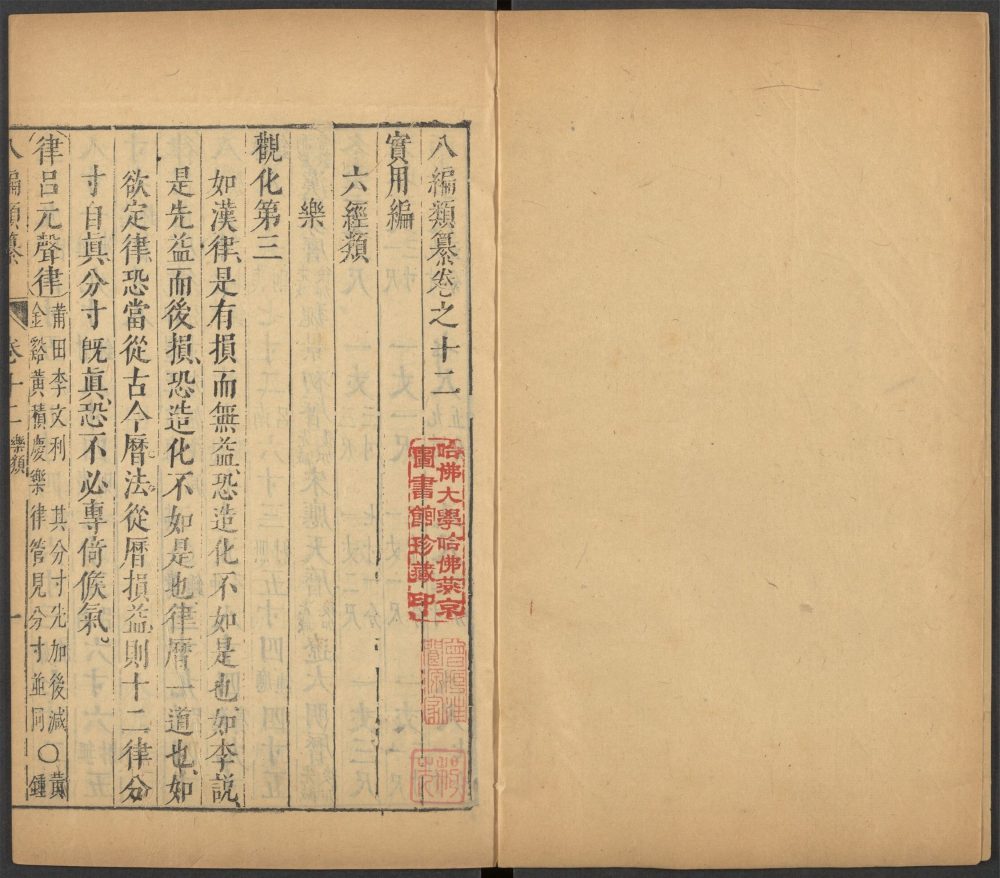 八編類纂卷之十二
哈佛大學哈佛燕京
圖書館珍藏印
實用編
六經類
樂
觀化第三
如漢律是有損而無益恐造化不如是也如李説
是先益而後損恐造化不如是也律曆一道也如
欲定律恐當從古今曆法從曆損益則十二律分
寸自眞分寸旣眞恐不必專倚候氣
律呂元聲律
莆田李文利 其分寸先加後減〇黃
金谿黃積慶樂律管見分寸並同 鍾
八編類纂 卷十二樂類 一